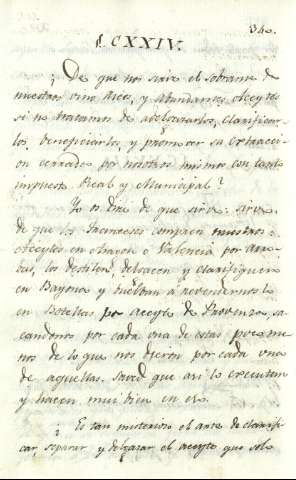 340.
§. CXXIV.
¿De que nos sirve el sobrante de
nuestros vinos, y abundantes Aceytes
si no tratamos de adelgazarlos, clarificar-
los, beneficiarlos, y promover su extracci-
on cerrados por nosotros mismos con tanto
impuesto Real y Municipal?
Yo os diré de que sirve. Sirve
de que los Franceses compren nuestros
Aceytes en Aragon o Valencia por arro-
bas, los destilen, delgacen y clarifiquen
en Bayona y buelban á revendernoslo
en Botellas por aceyte de Provenza, sa-
candonos por cada una de estas poco me-
nos de lo que nos dieron por cada una
de aquellas. Sabed que asi lo executan
y hacen mui bien en ello.
¿ Es tan misterioso el arte de clarifi-
car, separar y delgazar el aceyte que solo